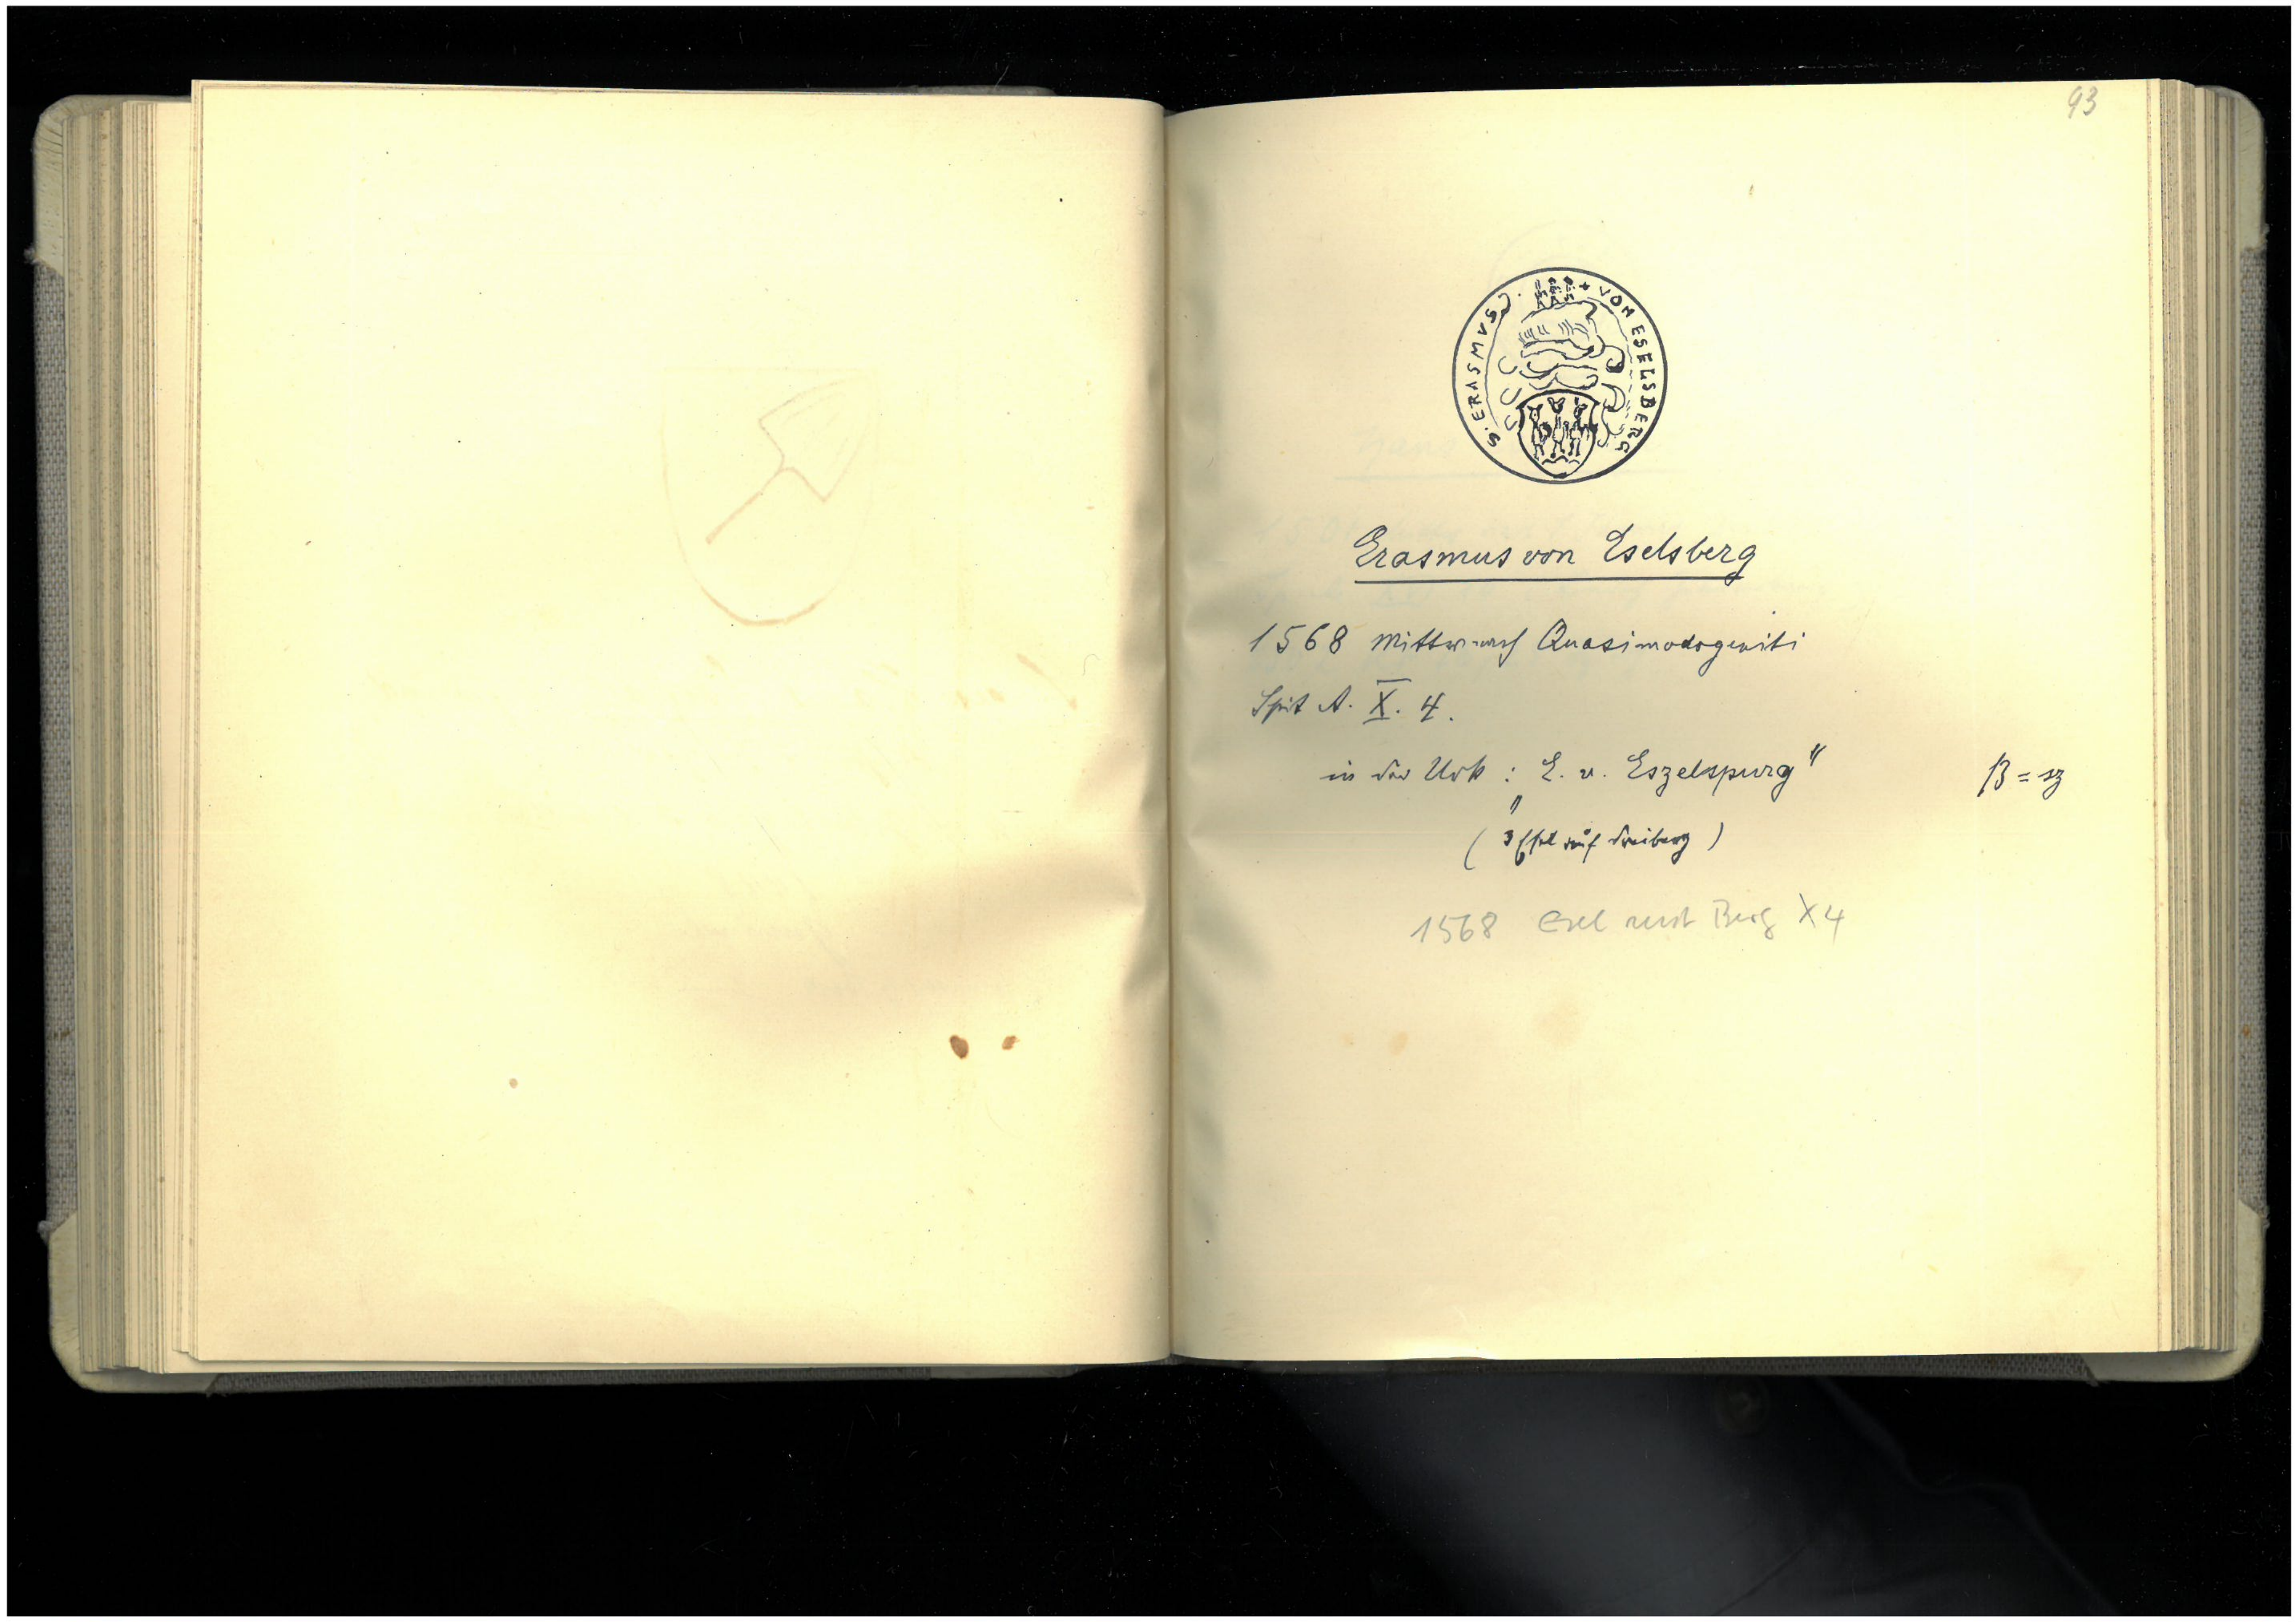 93
S. ERASMVS VON ESELSBERG
Erasmus von Eselsberg
1568 Mittw. nach Quasimodogeniti
Spit A. X. 4.
in der Urk : „E. v. Eszelspurg" ß = sz
( 3 Esel auf Dreiberg )
1568 Esel Berg X 4